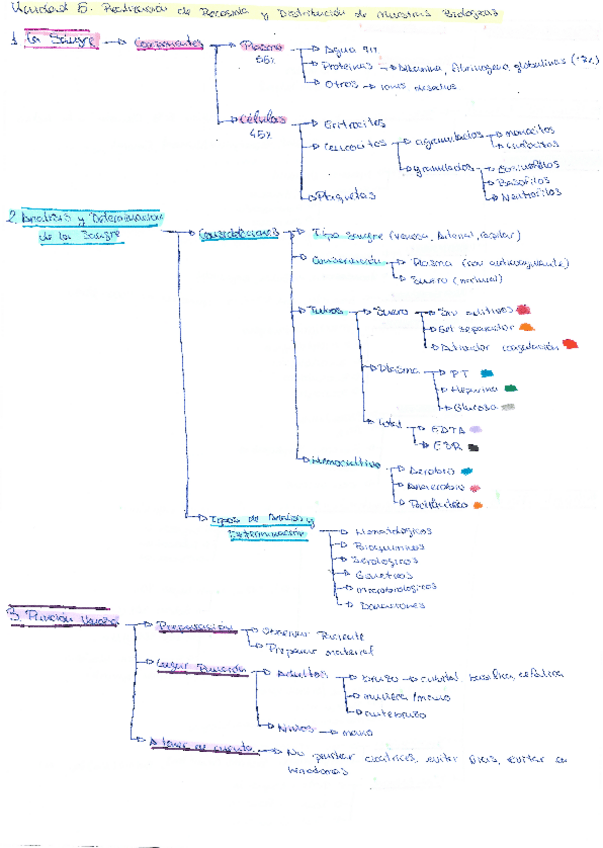 Unidad 5. Realización de Recogida y Distribución de Muestras Biológicas
1. La Sangre → Componentes → Plasma 55% → Agua 91%
Proteínas → Albúmina, fibrinógeno, globulinas
Otros → iones
Células 45% → Eritrocitos
Leucocitos → agranulados → monocitos
linfocitos
granulados → Eosinófilos
Basófilos
Neutrófilos
Plaquetas
2. Análisis y Determinación de la Sangre → Consideraciones → Tipo Sangre (Venosa, Arterial, Capilar)
Conservación → Plasma (con anticoagulante)
Suero (normal)
Tubos → Suero → Sin aditivos
Gel separador
Activador coagulación
Plasma → PT
Heparina
Glucosa
Total → EDTA
ESR
Hemocultivo → Aerobio
Anaerobio
Pediátrico
Tipos de Análisis y Determinación → Hematológicos
Bioquímicos
Serológicos
Genéticos
microbiológicos
3. Punción Venosa → Preparación → Paciente
Preparar material
Lugar Punción → Adultos → brazo → cubital basílica, cefálica
muñeca/mano
antebrazo
Niños → mano
A tener en cuenta → No pinchar cicatrices, evitar
hematomas